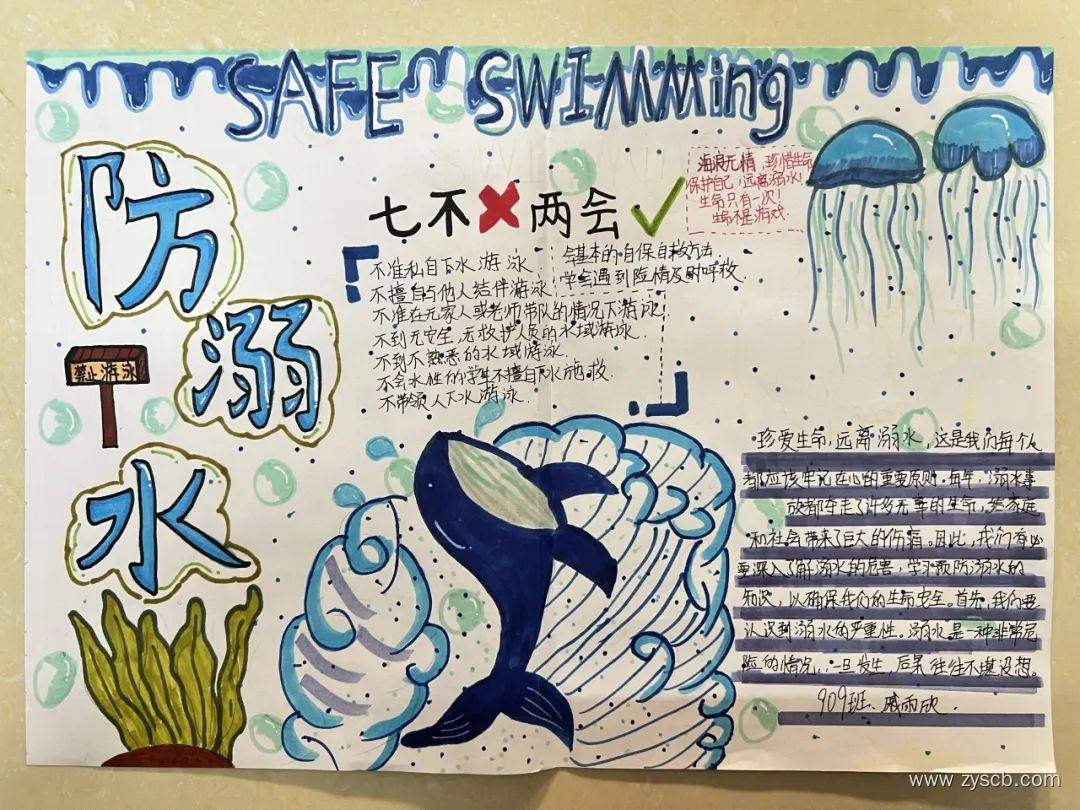 SAFE SWIMMing
防
溺
水
禁止游泳
七不 两会
海浪无情,珍惜生命
保护自己,远离溺水!
生命只有一次!
生命不是游戏.
不准私自下水游泳.
不擅自与他人结伴游泳
不准在无家人或老师带队的情况下游泳!
不到无安全,无救护人员的水域游泳.
不到不熟悉的水域游泳.
不会水性的学生不擅自下水施救.
不带领人下水游泳.
会基本的自保自救方法
学会遇到险情及时呼救.
珍爱生命,远离溺水,这是我们每个人
都应该牢记在心的重要原则.每年,溺水事
故都夺走了许多无辜的生命,给家庭
和社会带来了巨大的伤痛。因此,我们有必
要深入了解溺水的危害,学习预防溺水的
知识,以确保我们的生命安全。首先,我们要
认识到溺水的严重性。溺水是一种非常危
险的情况,一旦发生,后果往往不堪设想。
909班.戚雨欣.
www.zyscb.com